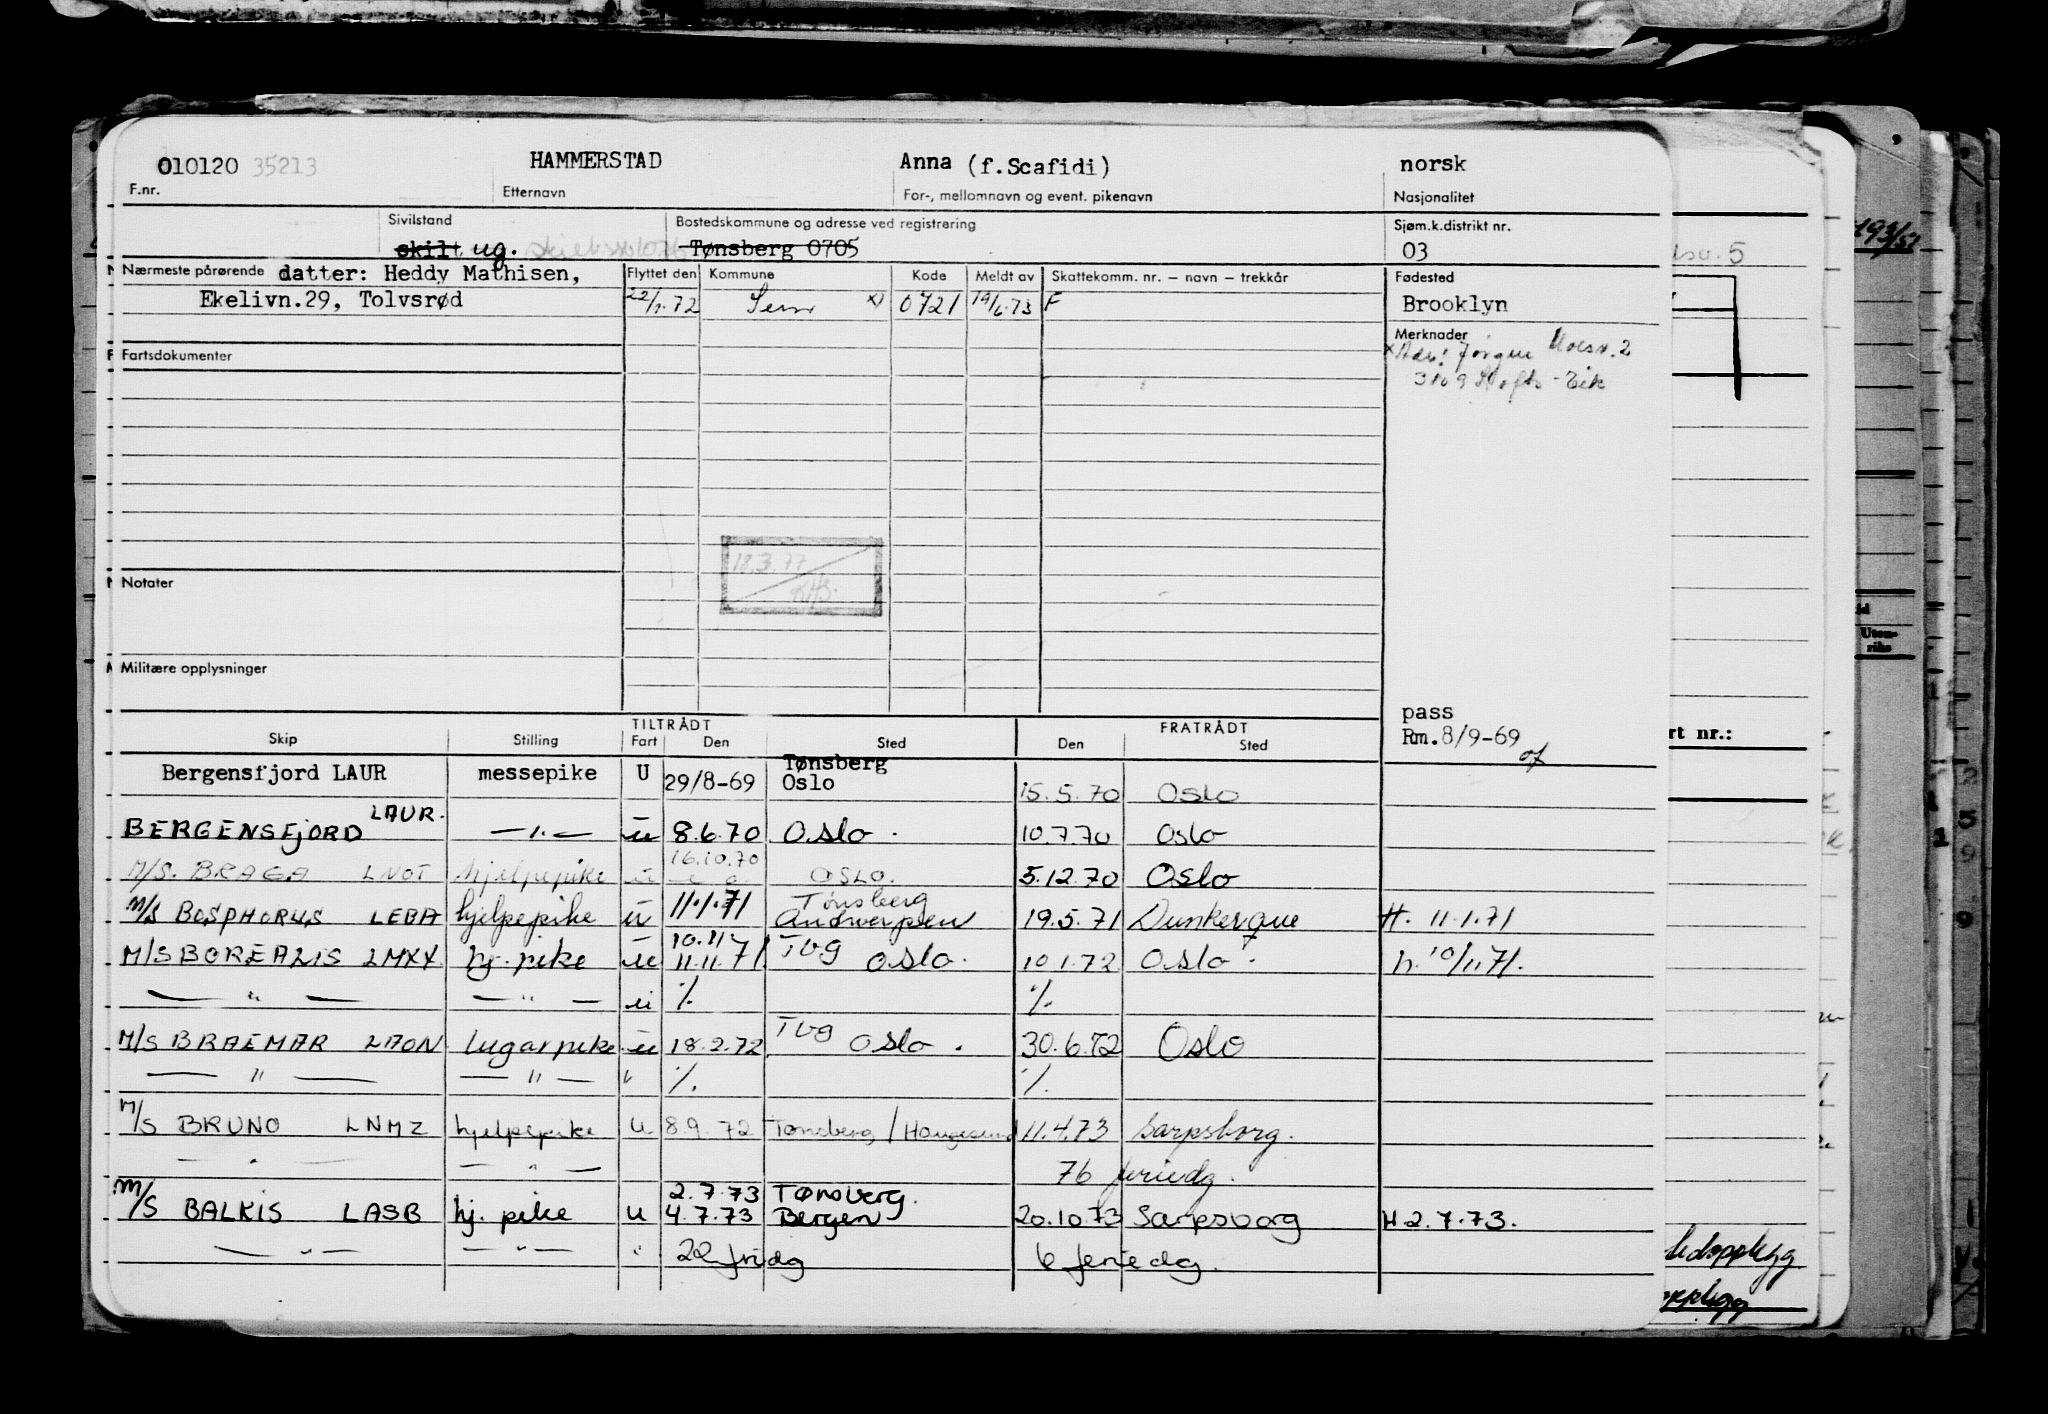 010120 35213 HAMMERSTAD Anna (f.Scafidi) norsk
F.nr. Etternavn For-, mellomnavn og event. pikenavn Nasjonalitet
Sivilstand Bostedskommune og adresse ved registrering Sjøm.k.distrikt nr.
skilt ug. Tønsberg 0705 03
Nærmeste pårørende datter: Heddy Mathisen, Flyttet den Kommune Kode Meldt av Skattekomm. nr. – navn – trekkår Fødested
Ekelivn.29, Tolvsrød 22/1.72 Sem x) 0721 19/6.73 F Brooklyn
Merknader
x Adr: Jørgen Moesv. 2
Fartsdokumenter
3109 - Eik
18.3.77
KHB.
Notater
Militære opplysninger
pass
Rm.8/9-69
TILTRÅDT FRATRÅDT
Skip Stilling Fart Den Sted Den Sted
Tønsberg
Bergensfjord LAUR messepike U 29/8-69 Oslo 15.5.70 Oslo
LAUR.
BERGENSFJORD —"— u 8.6.70 Oslo. 10.7.70 Oslo
16.10.70
M/S. BRAGA LNOT hjelpepike u OSLO. 5.12.70 Oslo
Tønsberg
M/S BOSPHORUS LEBA hjelpepike u 11.1.71 Andwerpen 19.5.71 Dunkerque H. 11.1.71
10.11
M/S BOREALIS LMXX hj. pike u 11.11.71 Tbg Oslo. 10.1.72 Oslo. h. 10/11.71.
— " — — " — u % %
M/S BRAEMAR LAON lugarpike u 18.2.72 Tbg Oslo. 30.6.72 Oslo
— " — — " — " % %
M/S BRUNO LNMZ hjelpepike u 8.9.72 Tønsberg/Haugesund 11.4.73 Sarpsborg.
— " — — " — 76 feriedg.
2.7.73 Tønsberg.
M/S BALKIS LASB hj. pike u 4.7.73 Bergen 20.10.73 Sarpsborg H 2.7.73.
— " — — " — " 22 fridg 6 feriedg.
193/51
sv. 5
Uten-
riks
rt nr.: